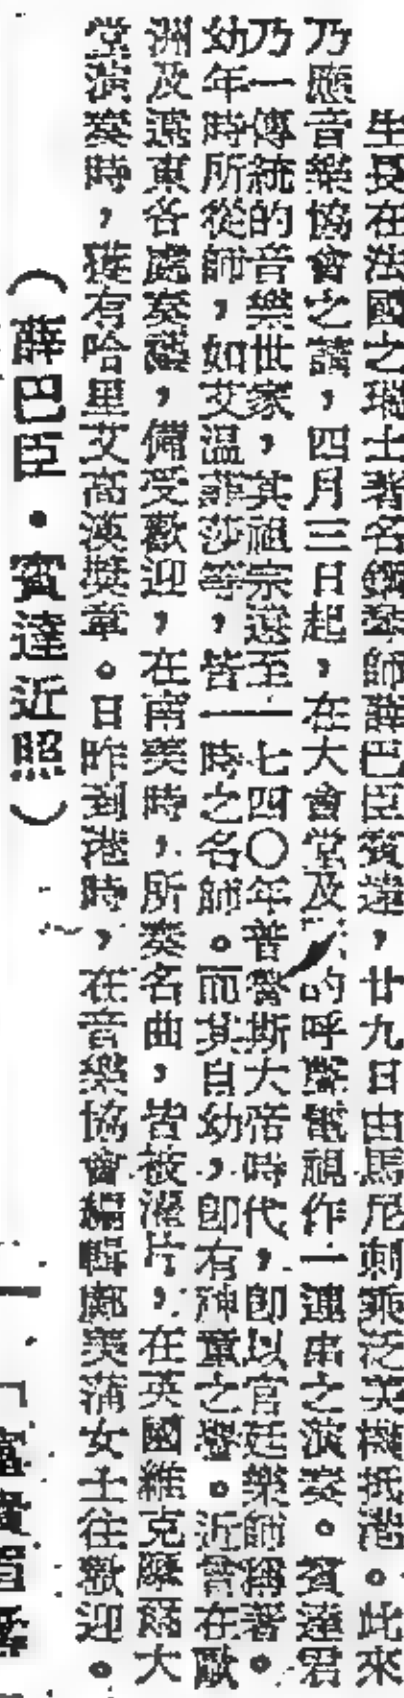 生長在法國之瑞士著名鋼琴師薛巴臣賓達,廿九日由馬尼剌乘泛美機抵港。此來
乃應音樂協會之請,四月三日起,在大會堂及的呼聲電視作一連串之演奏。賓達君
乃一傳統的音樂世家,其祖宗遠至一七四〇年普魯斯大帝時代,卽以官廷樂師稱著。
幼年時所從師,如艾溫菲莎等,皆一時之名師。而其自幼,卽有神童之譽。近曾在歐
洲及遠東各處奏演,備受歡迎,在南美時,所奏名曲,皆被灌片,在英國維克大
堂演奏時,獲有哈里艾高漢獎章。日昨到港時,在音樂協會編輯龐美蒲女士往歡迎。
(薛巴臣•賓達近照)